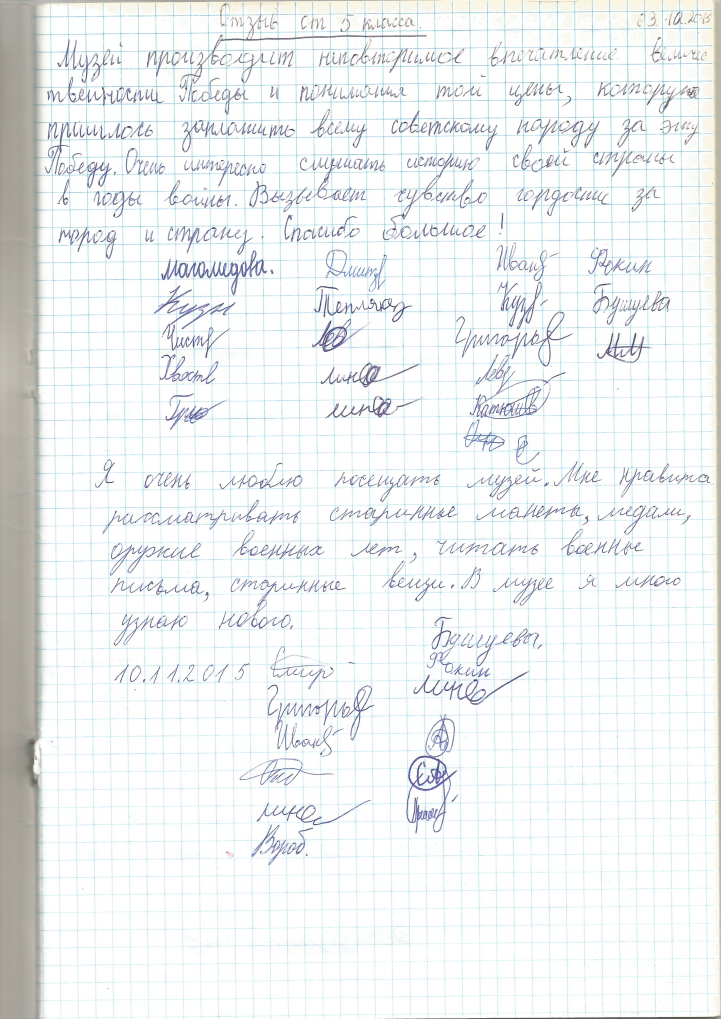 Отзыв от 5 класса. 23.10.2015
Музей производит неповторимое впечатление величес
твенности Победы и понимания той цены, которую
пришлось заплатить всему советскому народу за эту
Победу. Очень интересно слушать историю своей страны
в годы войны. Вызывает чувство гордости за
город и страну. Спасибо большое!
Магомедова. Дмитр Иван Фокин
Кузн Тепляков Кузв Бушуева
Чист Лев Григорьев
Хвост лин
лин Катюшев
Я очень люблю посещать музей. Мне нравится
рассматривать старинные манеты, медали,
оружие военных лет, читать военные
письма, старинные вещи. В музее я много
узнаю нового.
Бушуевы,
10.11.2015 Смир Фокин
Григорьев лин
Иван
лин
Вороб.